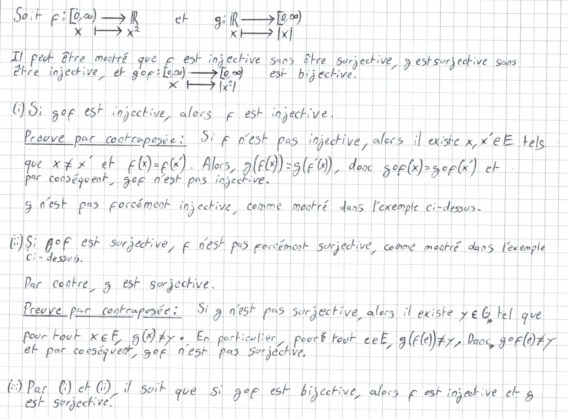 Soit f: [0,∞) ⟶ ℝ et g: ℝ ⟶ [0,∞)
x ⟼ x² x ⟼ |x|
Il peut être montré que f est injective sans être surjective, g est surjective sans
être injective, et g∘f: [0,∞) ⟶ [0,∞) est bijective.
x ⟼ |x²|
(i) Si g∘f est injective, alors f est injective.
Preuve par contraposée: Si f n'est pas injective, alors il existe x, x'∈E tels
que x ≠ x' et f(x)=f(x'). Alors, g(f(x))=g(f(x')), donc g∘f(x)=g∘f(x') et
par conséquent, g∘f n'est pas injective.
g n'est pas forcément injective, comme montré dans l'exemple ci-dessus.
(ii) Si g∘f est surjective, f n'est pas forcément surjective, comme montré dans l'exemple
ci-dessus.
Par contre, g est surjective.
Preuve par contraposée: Si g n'est pas surjective, alors il existe y∈G, tel que
pour tout x∈F, g(x)≠y. En particulier, pour tout e∈E, g(f(e))≠y. Donc, g∘f(e)≠y
et par conséquent, g∘f n'est pas surjective.
(iii) Par (i) et (ii), il suit que si g∘f est bijective, alors f est injective et g
est surjective.